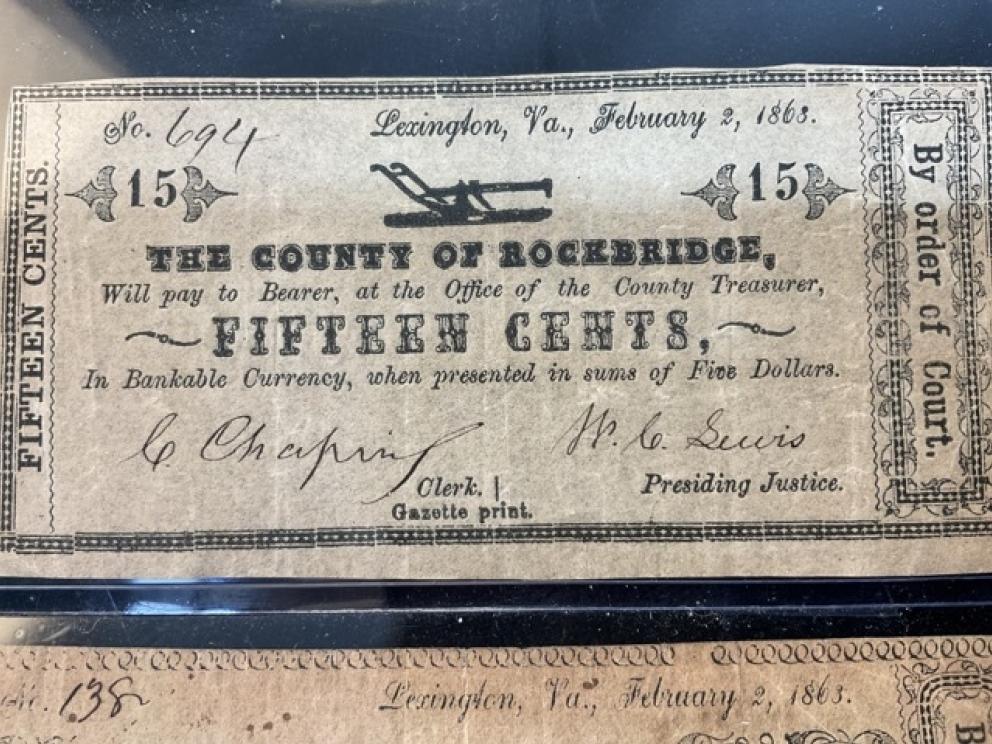 No. 694 Lexington, Va., February 2, 1863.
15 15
THE COUNTY OF ROCKBRIDGE,
Will pay to Bearer, at the Office of the County Treasurer,
FIFTEEN CENTS,
In Bankable Currency, when presented in sums of Five Dollars.
C Chapin W. C. Lewis
Clerk. Presiding Justice.
Gazette print.
FIFTEEN CENTS.
By order of Court.
No. 138 Lexington, Va., February 2, 1863.
B